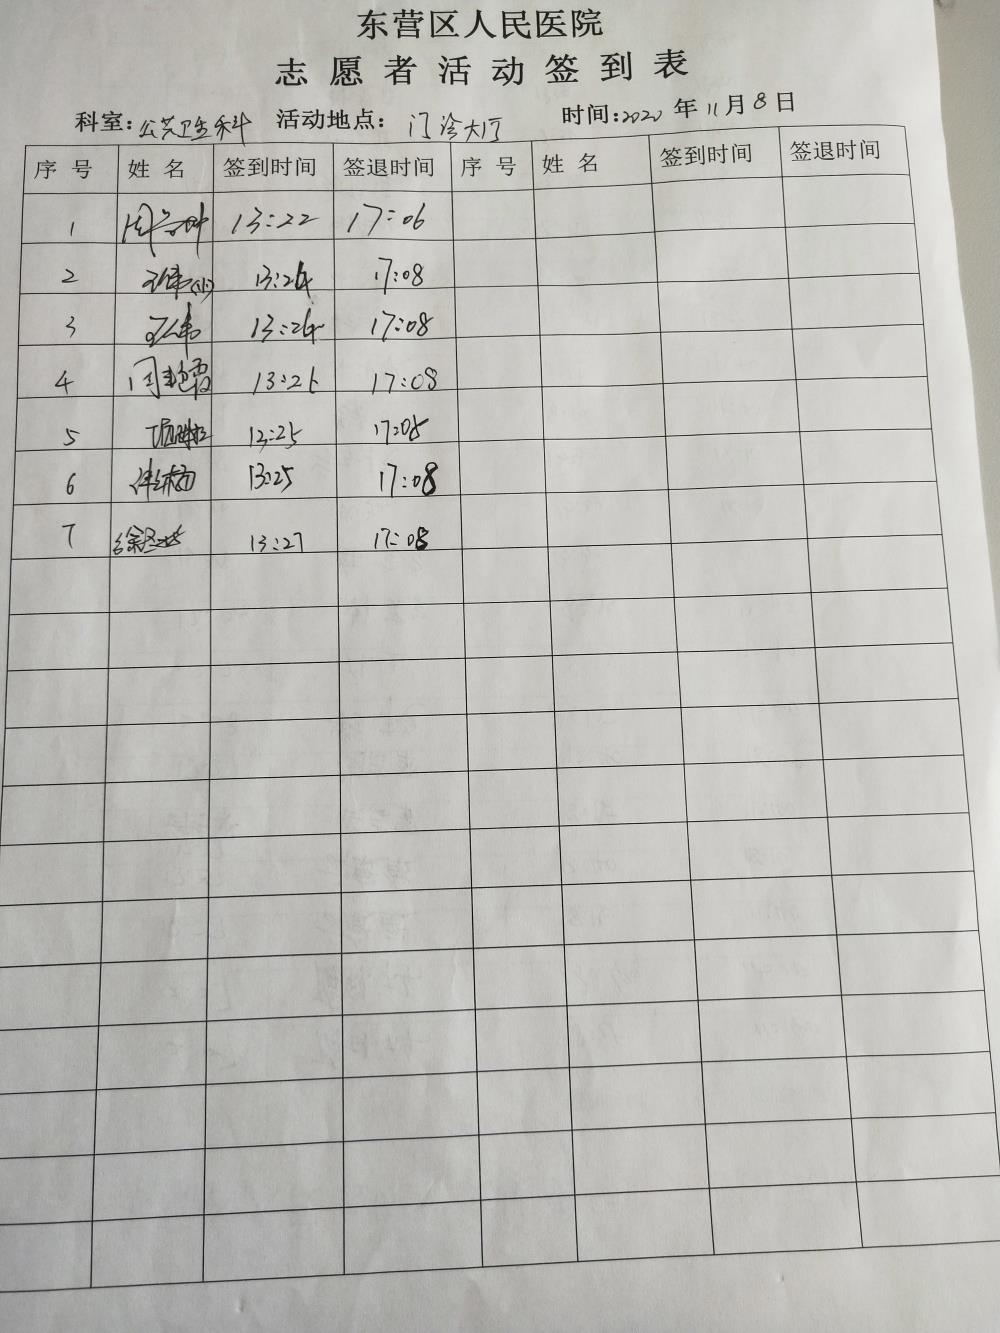 东营区人民医院
志愿者活动签到表
科室：公共卫生科 活动地点：门诊大厅 时间：2020年11月8日
序号 姓名 签到时间 签退时间 序号 姓名 签到时间 签退时间
1 13:22 17:06
2 13:24 17:08
3 13:24 17:08
4 13:25 17:08
5 13:25 17:08
6 13:25 17:08
7 13:27 17:08